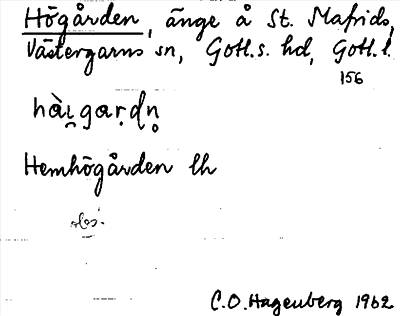 Högården, änge å St. Mafrids,
Västergarns sn, Gotl.s. hd, Gotl. l.
156
hài̯gaṛdn̥
Hemhögården lh
obs.
C.O. Hagenberg 1962